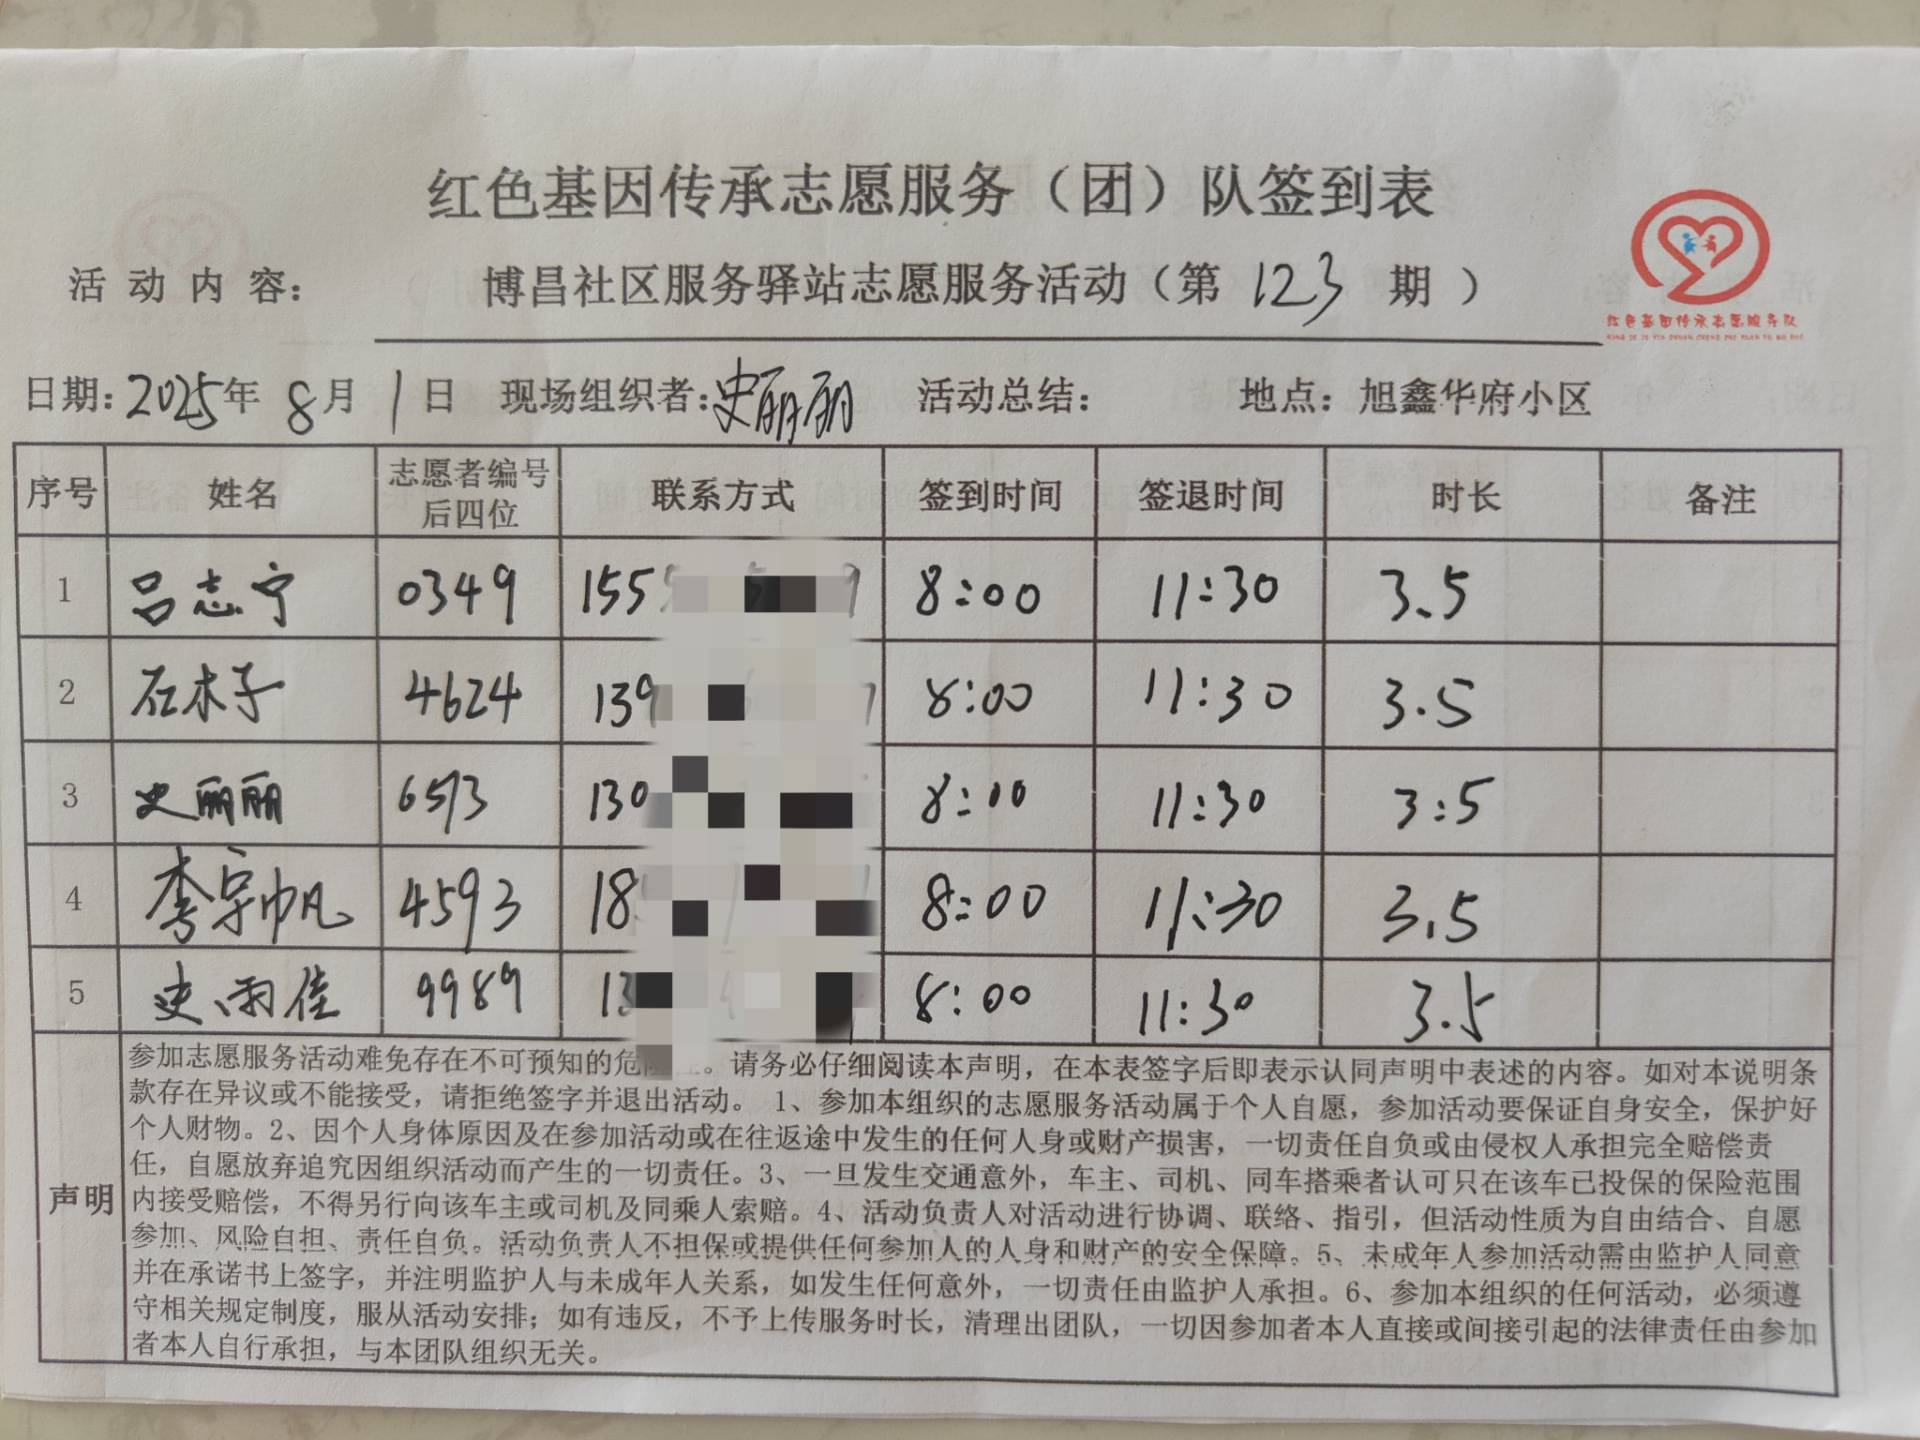 红色基因传承志愿服务（团）队签到表
活动内容： 博昌社区服务驿站志愿服务活动（第 123 期）
红色基因传承志愿服务队
日期：2025年 8月 1日 现场组织者：史丽丽 活动总结： 地点：旭鑫华府小区
序号 姓名 志愿者编号后四位 联系方式 签到时间 签退时间 时长 备注
1 吕志宁 0349 155 8:00 11:30 3.5
2 石木子 4624 139 8:00 11:30 3.5
3 史丽丽 6513 130 8:00 11:30 3:5
4 李宇帆 4593 18 8:00 11:30 3.5
5 史雨佳 9989 13 8:00 11:30 3.5
声明
参加志愿服务活动难免存在不可预知的危 。请务必仔细阅读本声明，在本表签字后即表示认同声明中表述的内容。如对本说明条
款存在异议或不能接受，请拒绝签字并退出活动。 1、参加本组织的志愿服务活动属于个人自愿，参加活动要保证自身安全，保护好
个人财物。2、因个人身体原因及在参加活动或在往返途中发生的任何人身或财产损害，一切责任自负或由侵权人承担完全赔偿责
任，自愿放弃追究因组织活动而产生的一切责任。3、一旦发生交通意外，车主、司机、同车搭乘者认可只在该车已投保的保险范围
内接受赔偿，不得另行向该车主或司机及同乘人索赔。4、活动负责人对活动进行协调、联络、指引，但活动性质为自由结合、自愿
参加、风险自担、责任自负。活动负责人不担保或提供任何参加人的人身和财产的安全保障。5、未成年人参加活动需由监护人同意
并在承诺书上签字，并注明监护人与未成年人关系，如发生任何意外，一切责任由监护人承担。6、参加本组织的任何活动，必须遵
守相关规定制度，服从活动安排；如有违反，不予上传服务时长，清理出团队，一切因参加者本人直接或间接引起的法律责任由参加
者本人自行承担，与本团队组织无关。